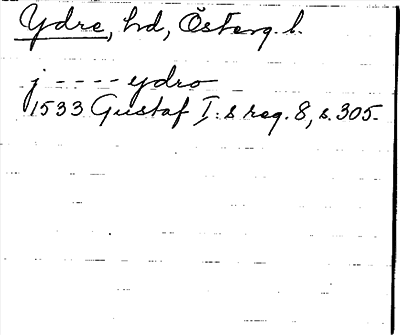 Ydre, hd, Österg. l.
j - - - - ydro
1533 Gustaf I:s reg. 8, s. 305.